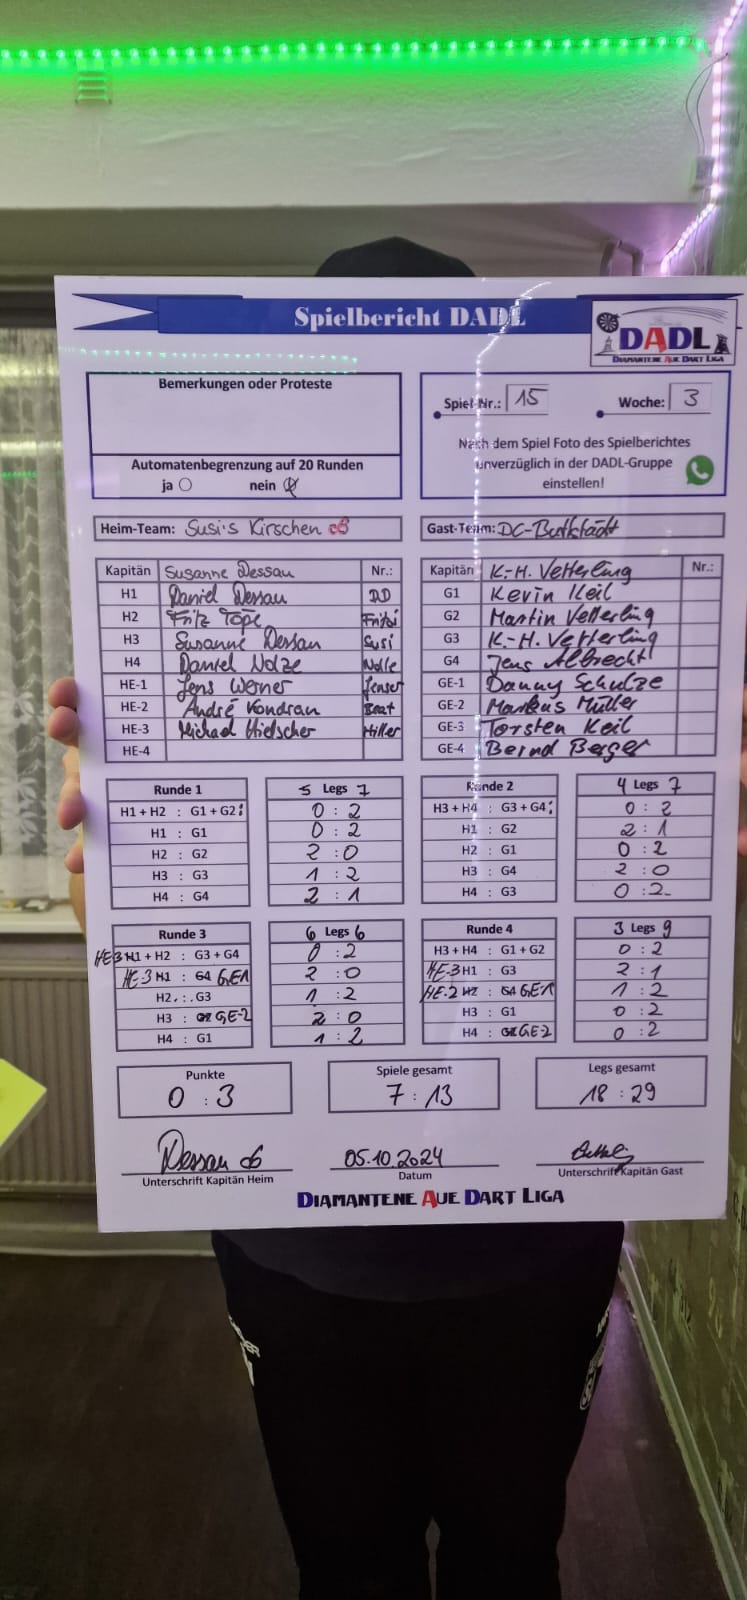 Spielbericht DADL
DADL
DIAMANTENE AUE DART LIGA
Bemerkungen oder Proteste
Automatenbegrenzung auf 20 Runden
ja nein
Spiel-Nr.: 15 Woche: 3
Nach dem Spiel Foto des Spielberichtes
unverzüglich in der DADL-Gruppe
einstellen!
Heim-Team: Susi's Kirschen
Gast-Team: DC-Buttstädt
Kapitän Susanne Dessau Nr.:
H1 Daniel Dessau DD
H2 Fritz Töpe Fritzi
H3 Susanne Dessau Susi
H4 Daniel Nolze Nolle
HE-1 Jens Werner Jenser
HE-2 André Kondran Beat
HE-3 Michael Hielscher Hiller
HE-4
Kapitän K.-H. Vetterling Nr.:
G1 Kevin Keil
G2 Martin Vetterling
G3 K.-H. Vetterling
G4 Jens Albrecht
GE-1 Danny Schulze
GE-2 Markus Müller
GE-3 Torsten Keil
GE-4 Bernd Berger
Runde 1 5 Legs 7
H1 + H2 : G1 + G2: 0 : 2
H1 : G1 0 : 2
H2 : G2 2 : 0
H3 : G3 1 : 2
H4 : G4 2 : 1
Runde 2 4 Legs 7
H3 + H4 : G3 + G4: 0 : 2
H1 : G2 2 : 1
H2 : G1 0 : 2
H3 : G4 2 : 0
H4 : G3 0 : 2
Runde 3 6 Legs 6
HE-3 H1 + H2 : G3 + G4 0 : 2
HE-3 H1 : G4 GE1 2 : 0
H2 . : . G3 1 : 2
H3 : G2 GE-2 2 : 0
H4 : G1 1 : 2
Runde 4 3 Legs 9
H3 + H4 : G1 + G2 0 : 2
HE-3 H1 : G3 2 : 1
HE-2 H2 : G4 GE1 1 : 2
H3 : G1 0 : 2
H4 : G2 GE-2 0 : 2
Punkte
0 : 3
Spiele gesamt
7 : 13
Legs gesamt
18 : 29
Dessau
Unterschrift Kapitän Heim
05.10.2024
Datum
Unterschrift Kapitän Gast
DIAMANTENE AUE DART LIGA